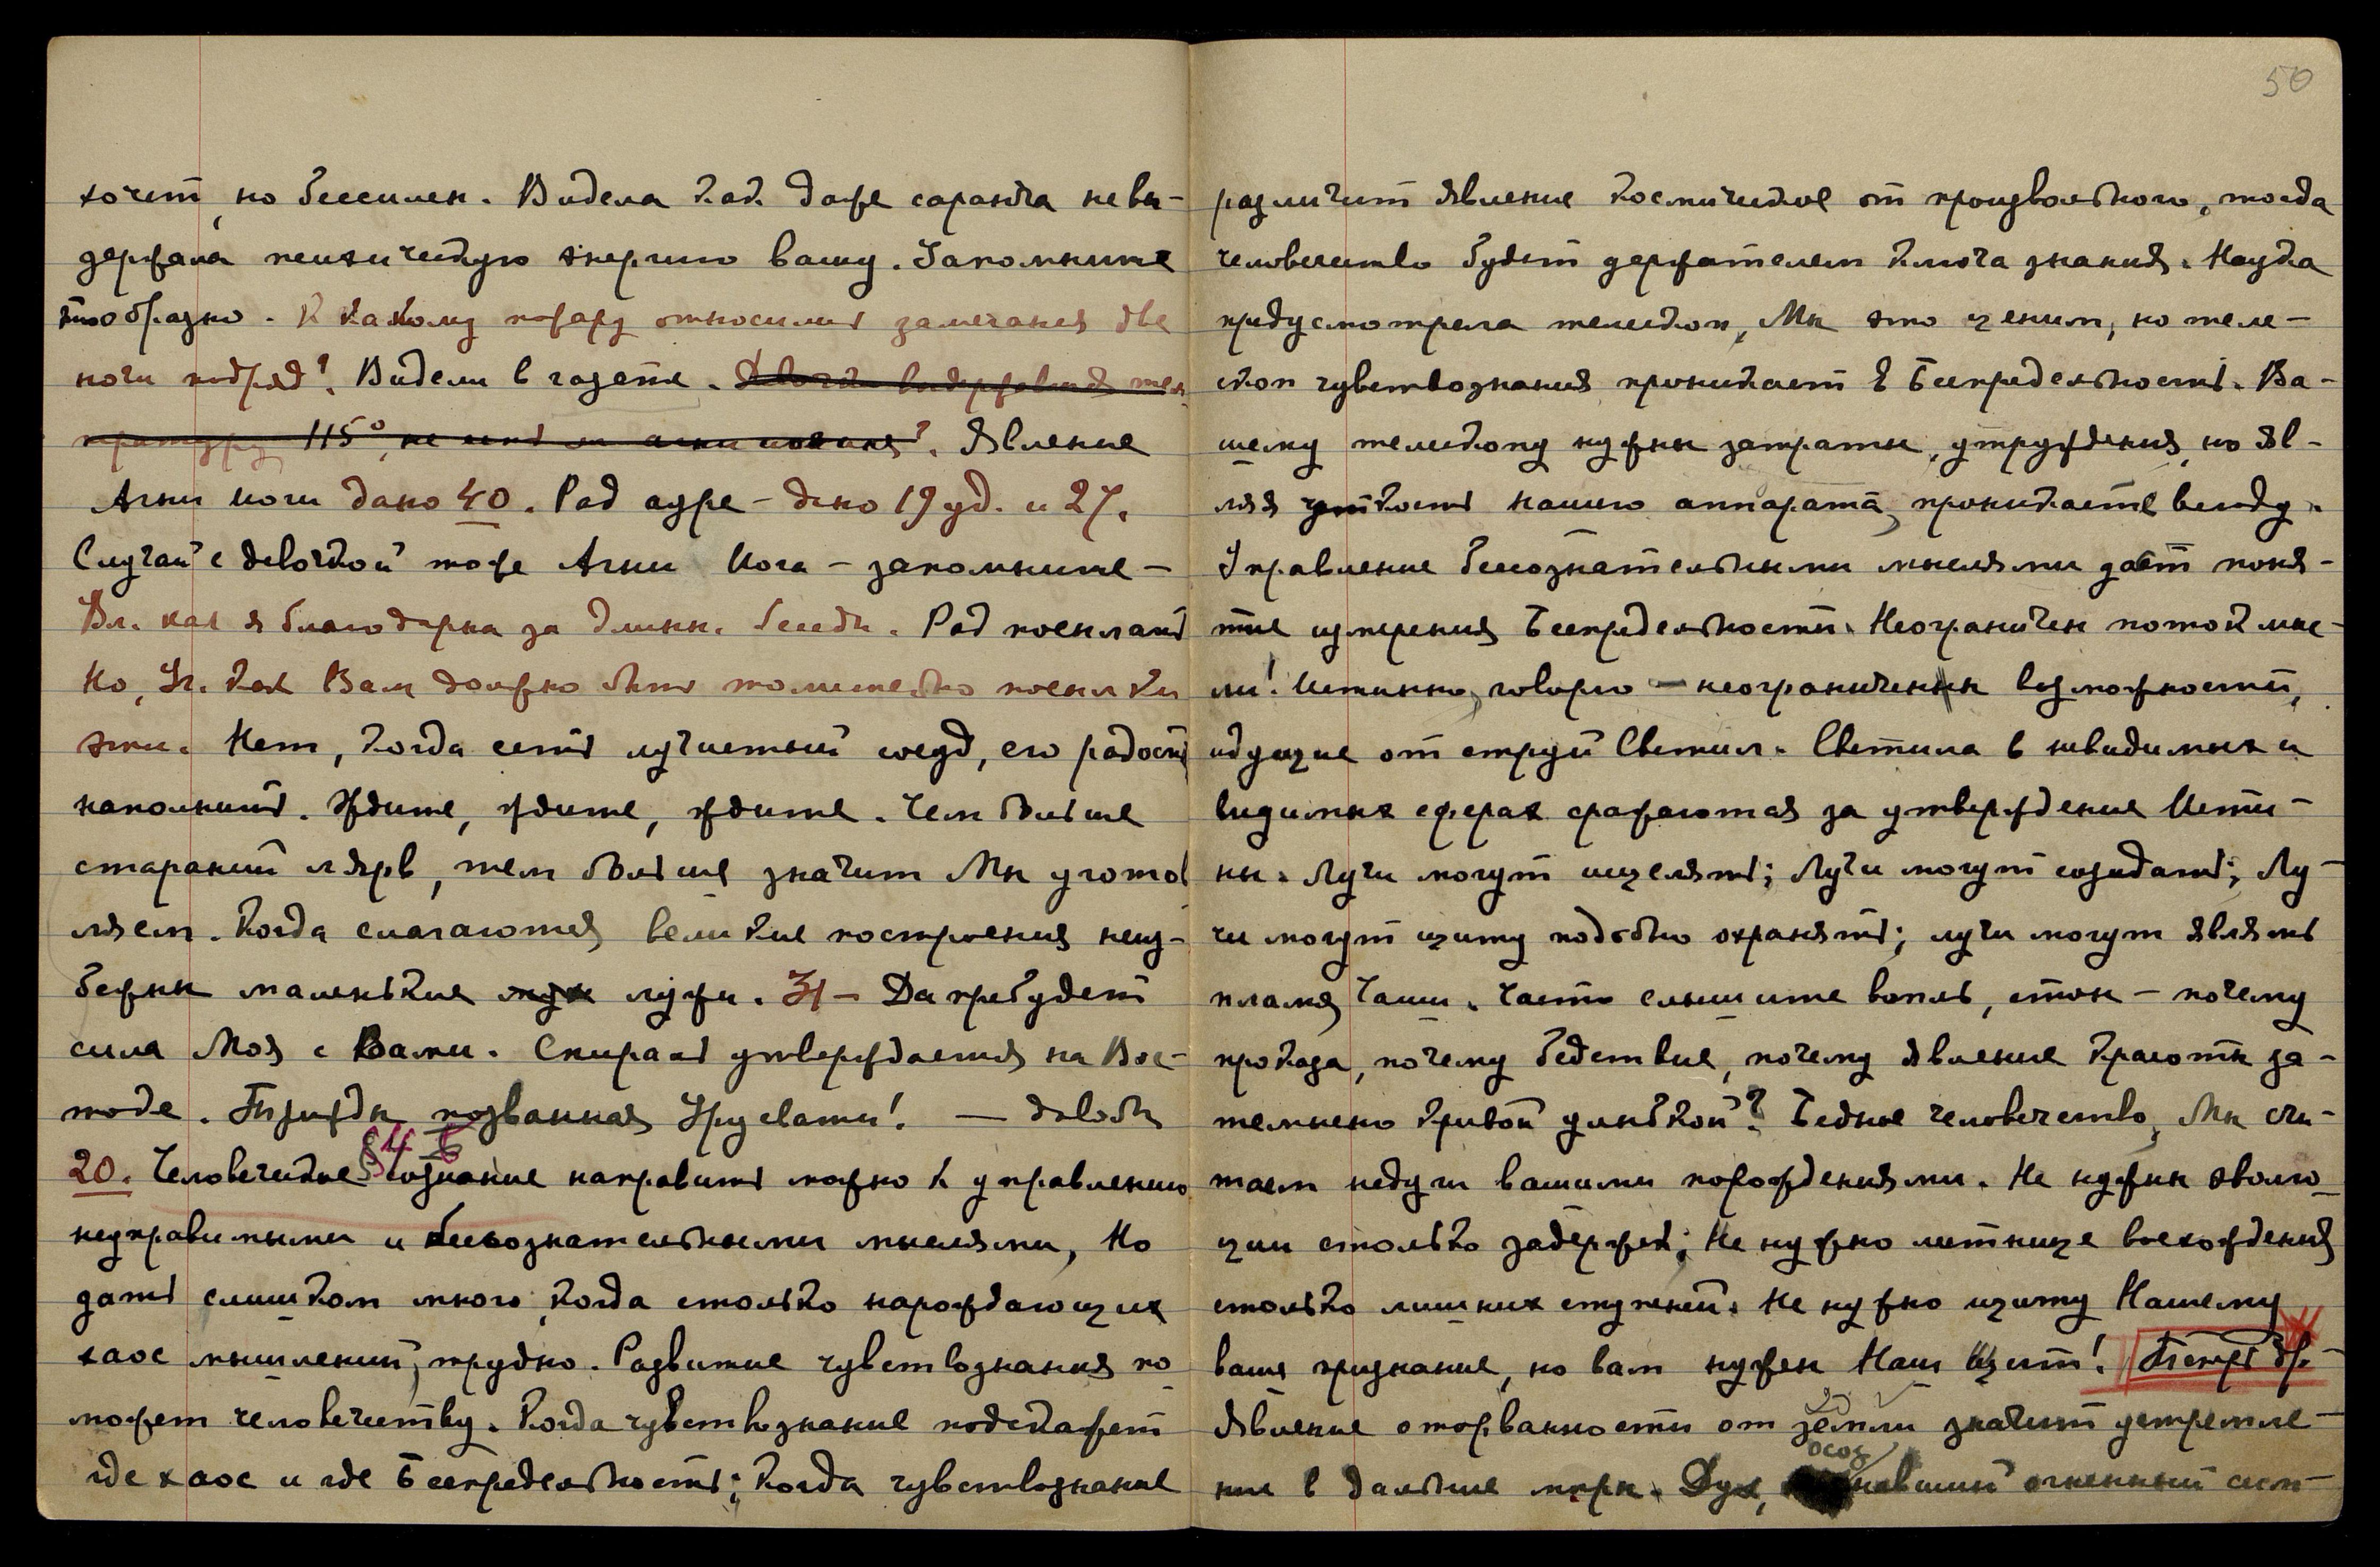 50
хочет, но бессилен. Видела как даже саранча не вы-
держала психическую энергию вашу. Запомните
это образно. К какому пожару относились замечания две
ночи подряд? Видели в газете. Девочка выдержавшая тем
пературу 115°, не есть ли агни йогиня? Явление
Агни Йоги дано 40. Рад ауре – дано 19 уд. и 27.
Случай с девочкой тоже Агни Йога – запомните –
Вл. как я благодарна за длинн. беседы. Рад посылать
Но, Уч. как Вам должно быть томительно посылки
эти. Нет, когда есть лучистый сосуд, его радость
наполнить. Ждите, ждите, ждите. Чем больше
стараний лярв, тем больше значит Мы уготов
ляем. Когда слагаются великие построения неиз-
бежны маленькие лужи. 31 – Да пребудет
сила Моя с Вами. Спираль утверждается на Вос-
токе. Трижды позванная Урусвати! — довольно
§4 Б
20. Человеческое сознание направить можно к управлению
неуправимыми и бессознательными мыслями, Но
дать слишком много, когда столько нарождающих
хаос мышлений, трудно. Развитие чувствознания по
может человечеству. Когда чувствознание подскажет
где хаос и где Беспредельность; когда чувствознание
различит явление космическое от произвольного, тогда
человечество будет держателем ключа знания. Наука
предусмотрела телескоп, Мы это ценим, но теле-
скоп чувствознания проникает в Беспредельность. Ва-
шему телескопу нужны затраты, утруждения, но яв-
ляя чуткость нашего аппарата, проникаете всюду.
Управление бессознательными мыслями даст поня-
тие измерения Беспредельности. Неограничен поток мыс-
ли! Истинно, говорю – неограничены возможности,
идущие от струй Светил. Светила в невидимых и
видимых сферах сражаются за утверждение Исти-
ны. Лучи могут исцелять; Лучи могут созидать; Лу-
чи могут щиту подобно охранять; лучи могут являть
пламя Чаши. Часто слышите вопль, стон – почему
проказа, почему бедствие, почему явление красоты за-
темнено кривой улыбкой? Бедное человечество, Мы счи-
таем недуги вашими порождениями. Не нужны эволю-
ции столько задержек; Не нужно лестнице восхождения
столько лишних ступеней. Не нужно щиту Нашему
ваше признание, но вам нужен Наш Щит!
Явление оторванности от земли значит устремле-
ние в дальние миры. Дух, осознавший огненный сим-